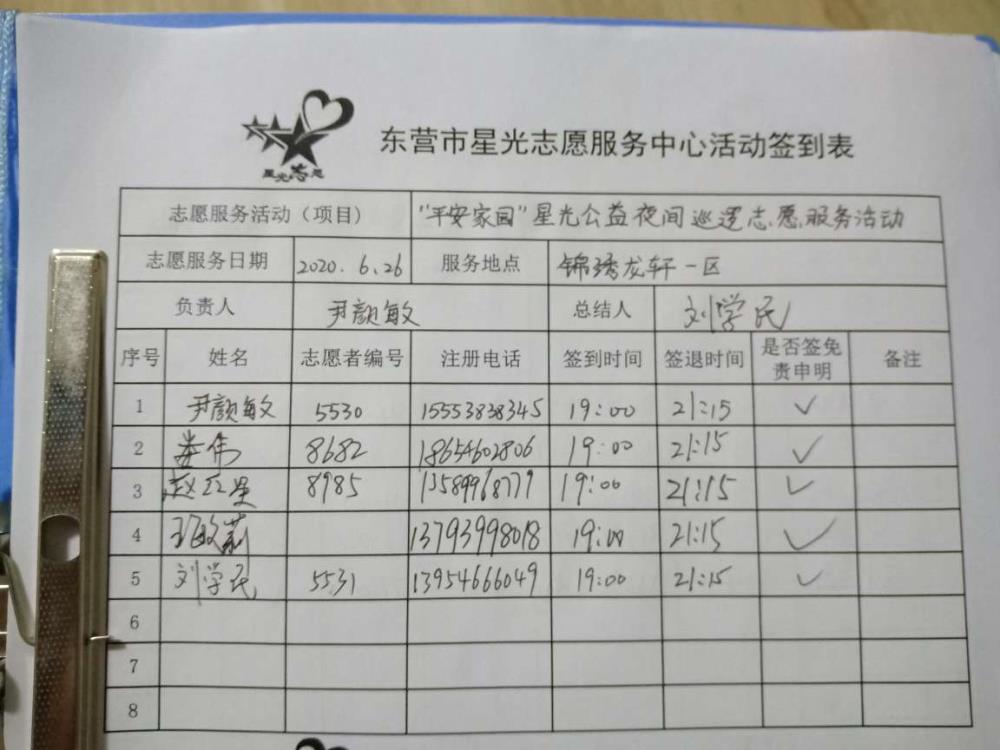 星光志愿
东营市星光志愿服务中心活动签到表
志愿服务活动（项目） "平安家园"星光公益夜间巡逻志愿服务活动
志愿服务日期 2020.6.26 服务地点 锦绣龙轩一区
负责人 尹颜敏 总结人 刘学民
序号 姓名 志愿者编号 注册电话 签到时间 签退时间 是否签免责申明 备注
1 尹颜敏 5530 15553838345 19:00 21:15 ✓
2 娄伟 8682 18654602806 19:00 21:15 ✓
3 赵红星 8985 13589968779 19:00 21:15 ✓
4 13793998018 19:00 21:15 ✓
5 刘学民 5531 13954666049 19:00 21:15 ✓
6
7
8